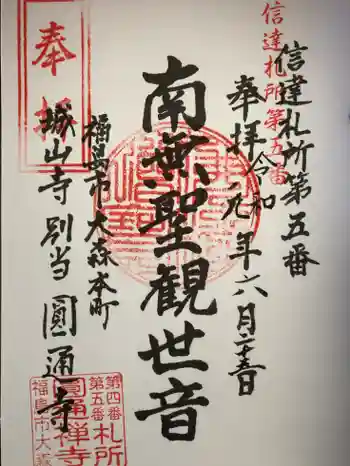 信達札所第五番
信達札所第五番
奉拝 令和元年六月二十五日
南無聖観世音
福島市大森本町
奉拝
城山寺別当 圓通寺
第四番
第五番
札所
圓通禅寺
福島市大森